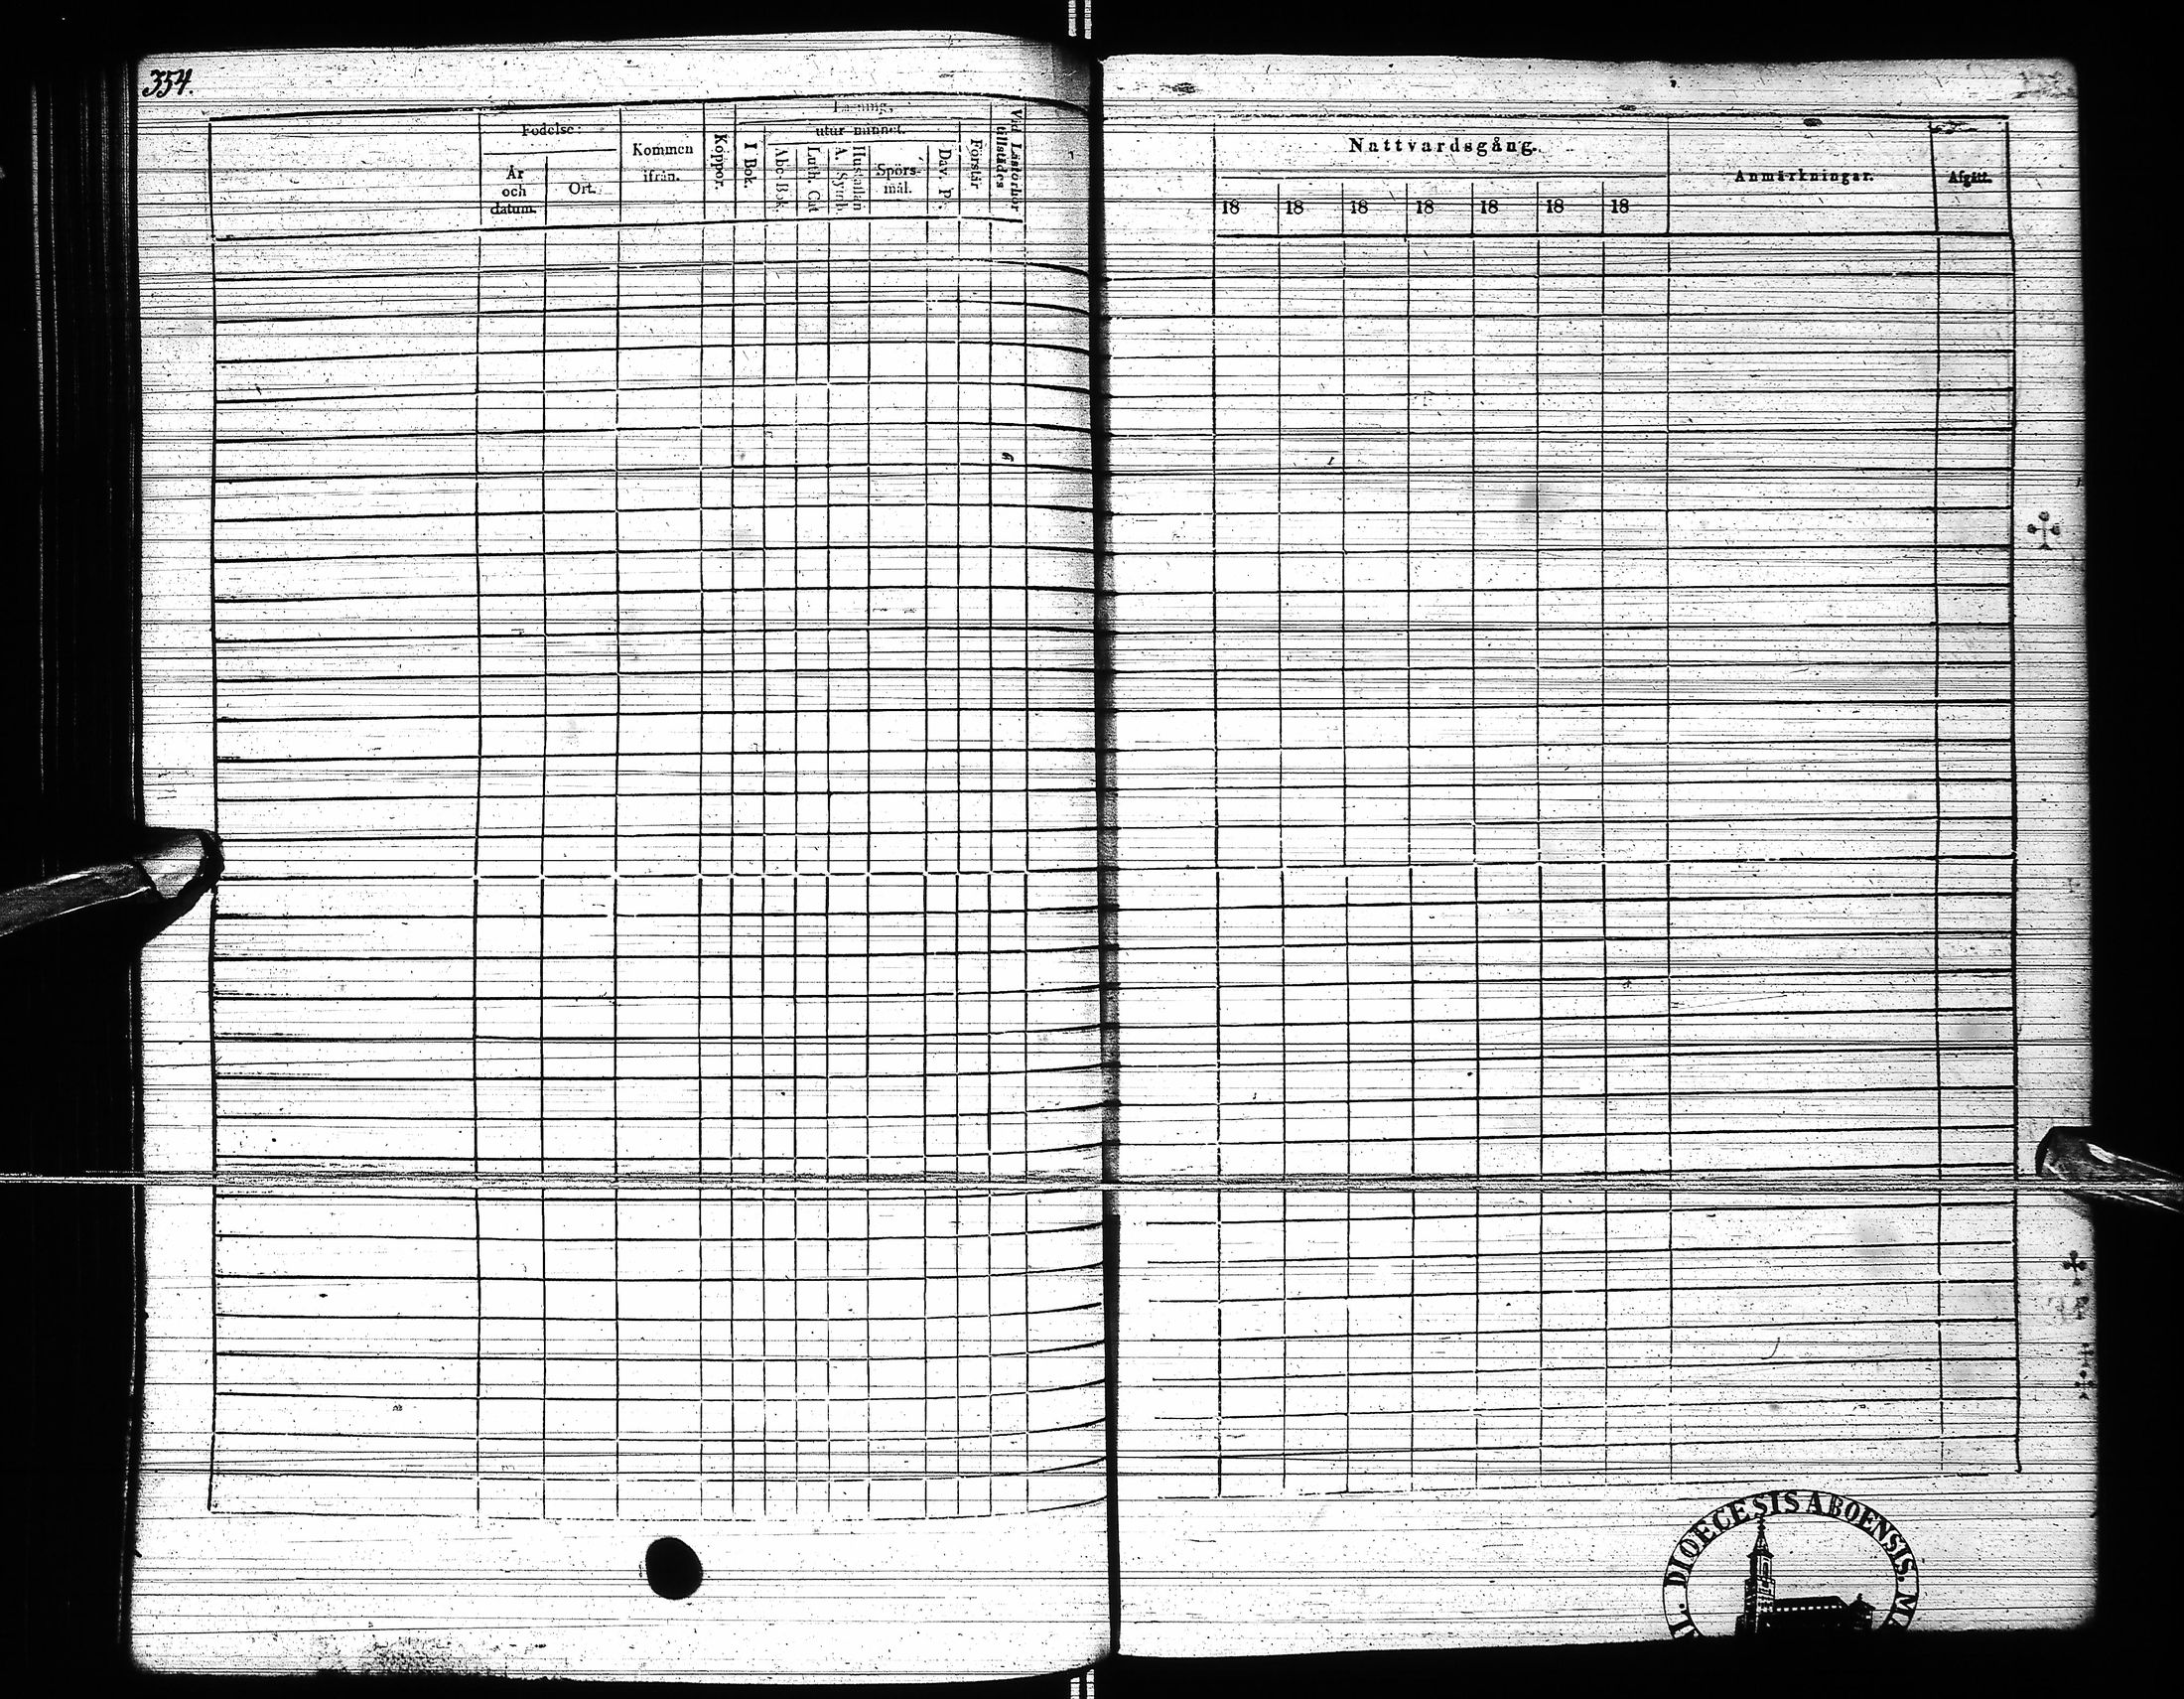 354.
Födelse:
År
och
datum.
Ort.
Kommen
ifrån.
Koppor.
Läsning,
I Bok.
utur minnet.
Abc Bok.
Luth. Cat
Hustaflan
A. Symb.
Spörs-
mål.
Dav. P.
Förstår
Vid Läsförhör
tillstädes
Nattvardsgång.
18 18 18 18 18 18 18
Anmärkningar.
Afgått.
DIOECESIS ABOENSIS. M.